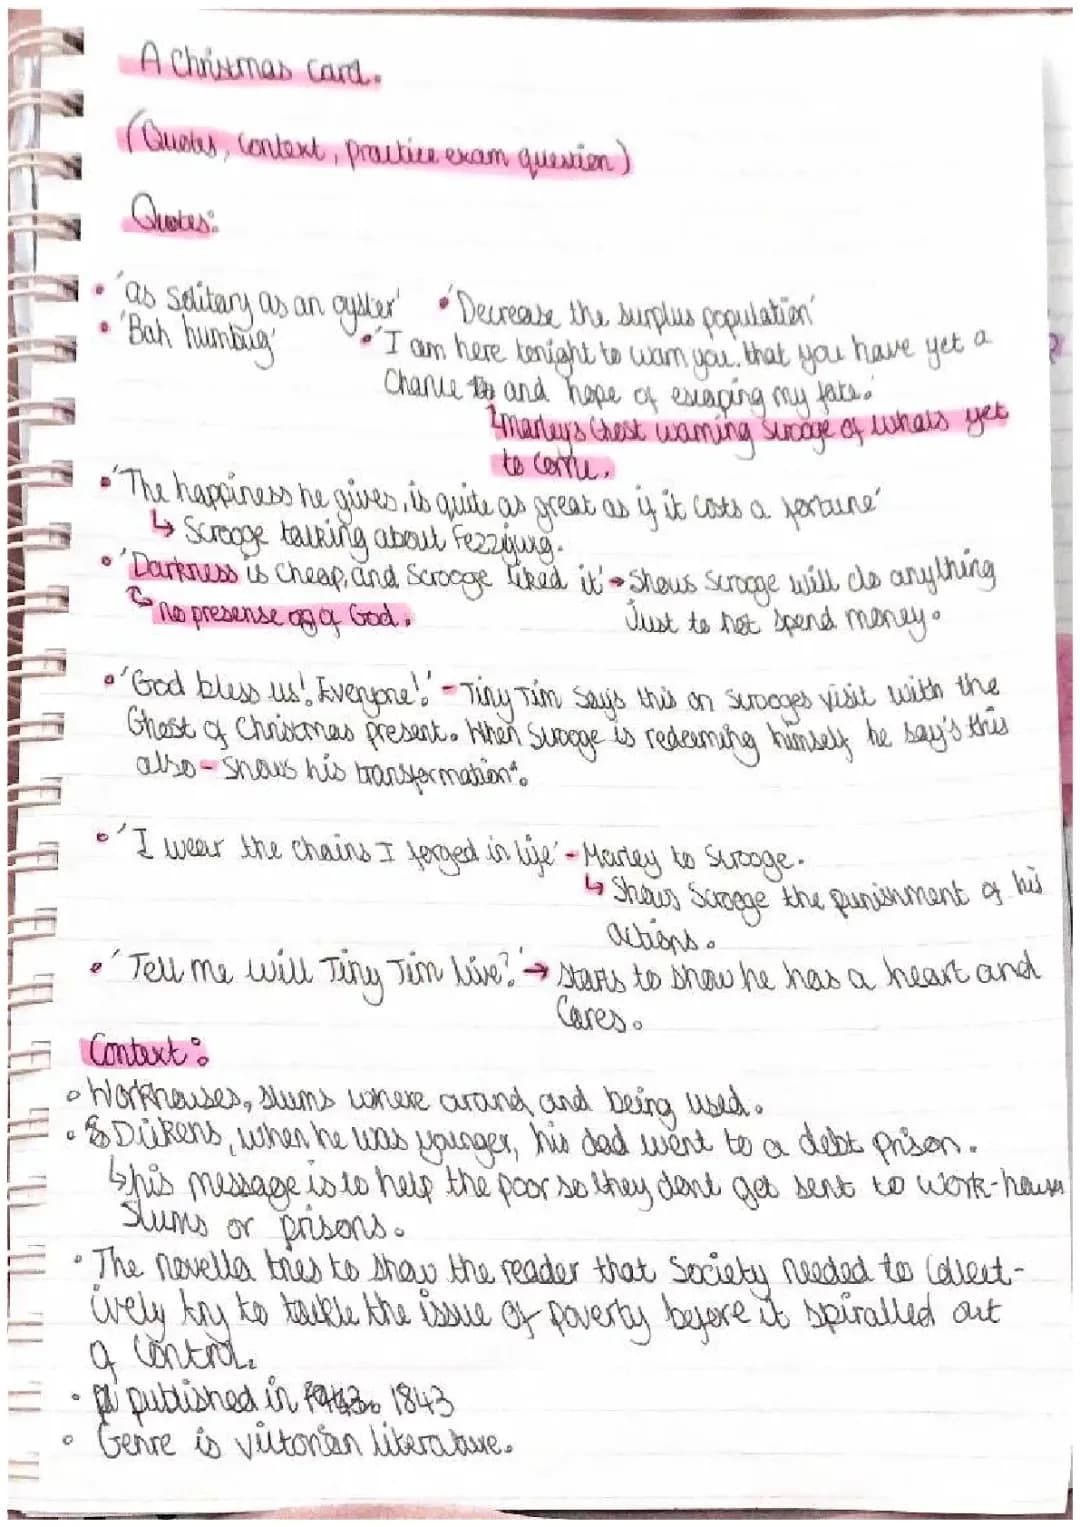 A Christmas Carol.
(Quotes, Context, practice exam question)
Quotes:
• 'as solitary as an oyster' • 'Decrease the surplus population'
• 'Bah humbug' • 'I am here tonight to warn you. that you have yet a
Chance and hope of escaping my fate.'
↳ Marley's Ghost warning Scrooge of whats yet
to come.
• 'The happiness he gives, is quite as great as if it costs a fortune'
↳ Scrooge talking about Fezziwig.
• 'Darkness is cheap, and Scrooge liked it' → Shows Scrooge will do anything
↳ no presense of a God. Just to not spend money.
• 'God bless us! Everyone!' - Tiny Tim Say's this on Scrooges visit with the
Ghost of Christmas present. When Scrooge is redeeming himself he say's this
also - Shows his transformation.
• 'I wear the chains I forged in life' - Marley to Scrooge.
↳ Shows Scrooge the punishment of his
actions.
• 'Tell me will Tiny Tim live?' → starts to show he has a heart and
Cares.
Context:
• Workhouses, slums where around and being used.
• Dickens, when he was younger, his dad went to a debt prison.
↳ his message is to help the poor so they dont get sent to work-houses
Slums or prisons.
• The novella tries to show the reader that Society needed to Collect-
ively try to tackle the issue of poverty before it spiralled out
of control.
• published in 1843
• Genre is victorian literature.